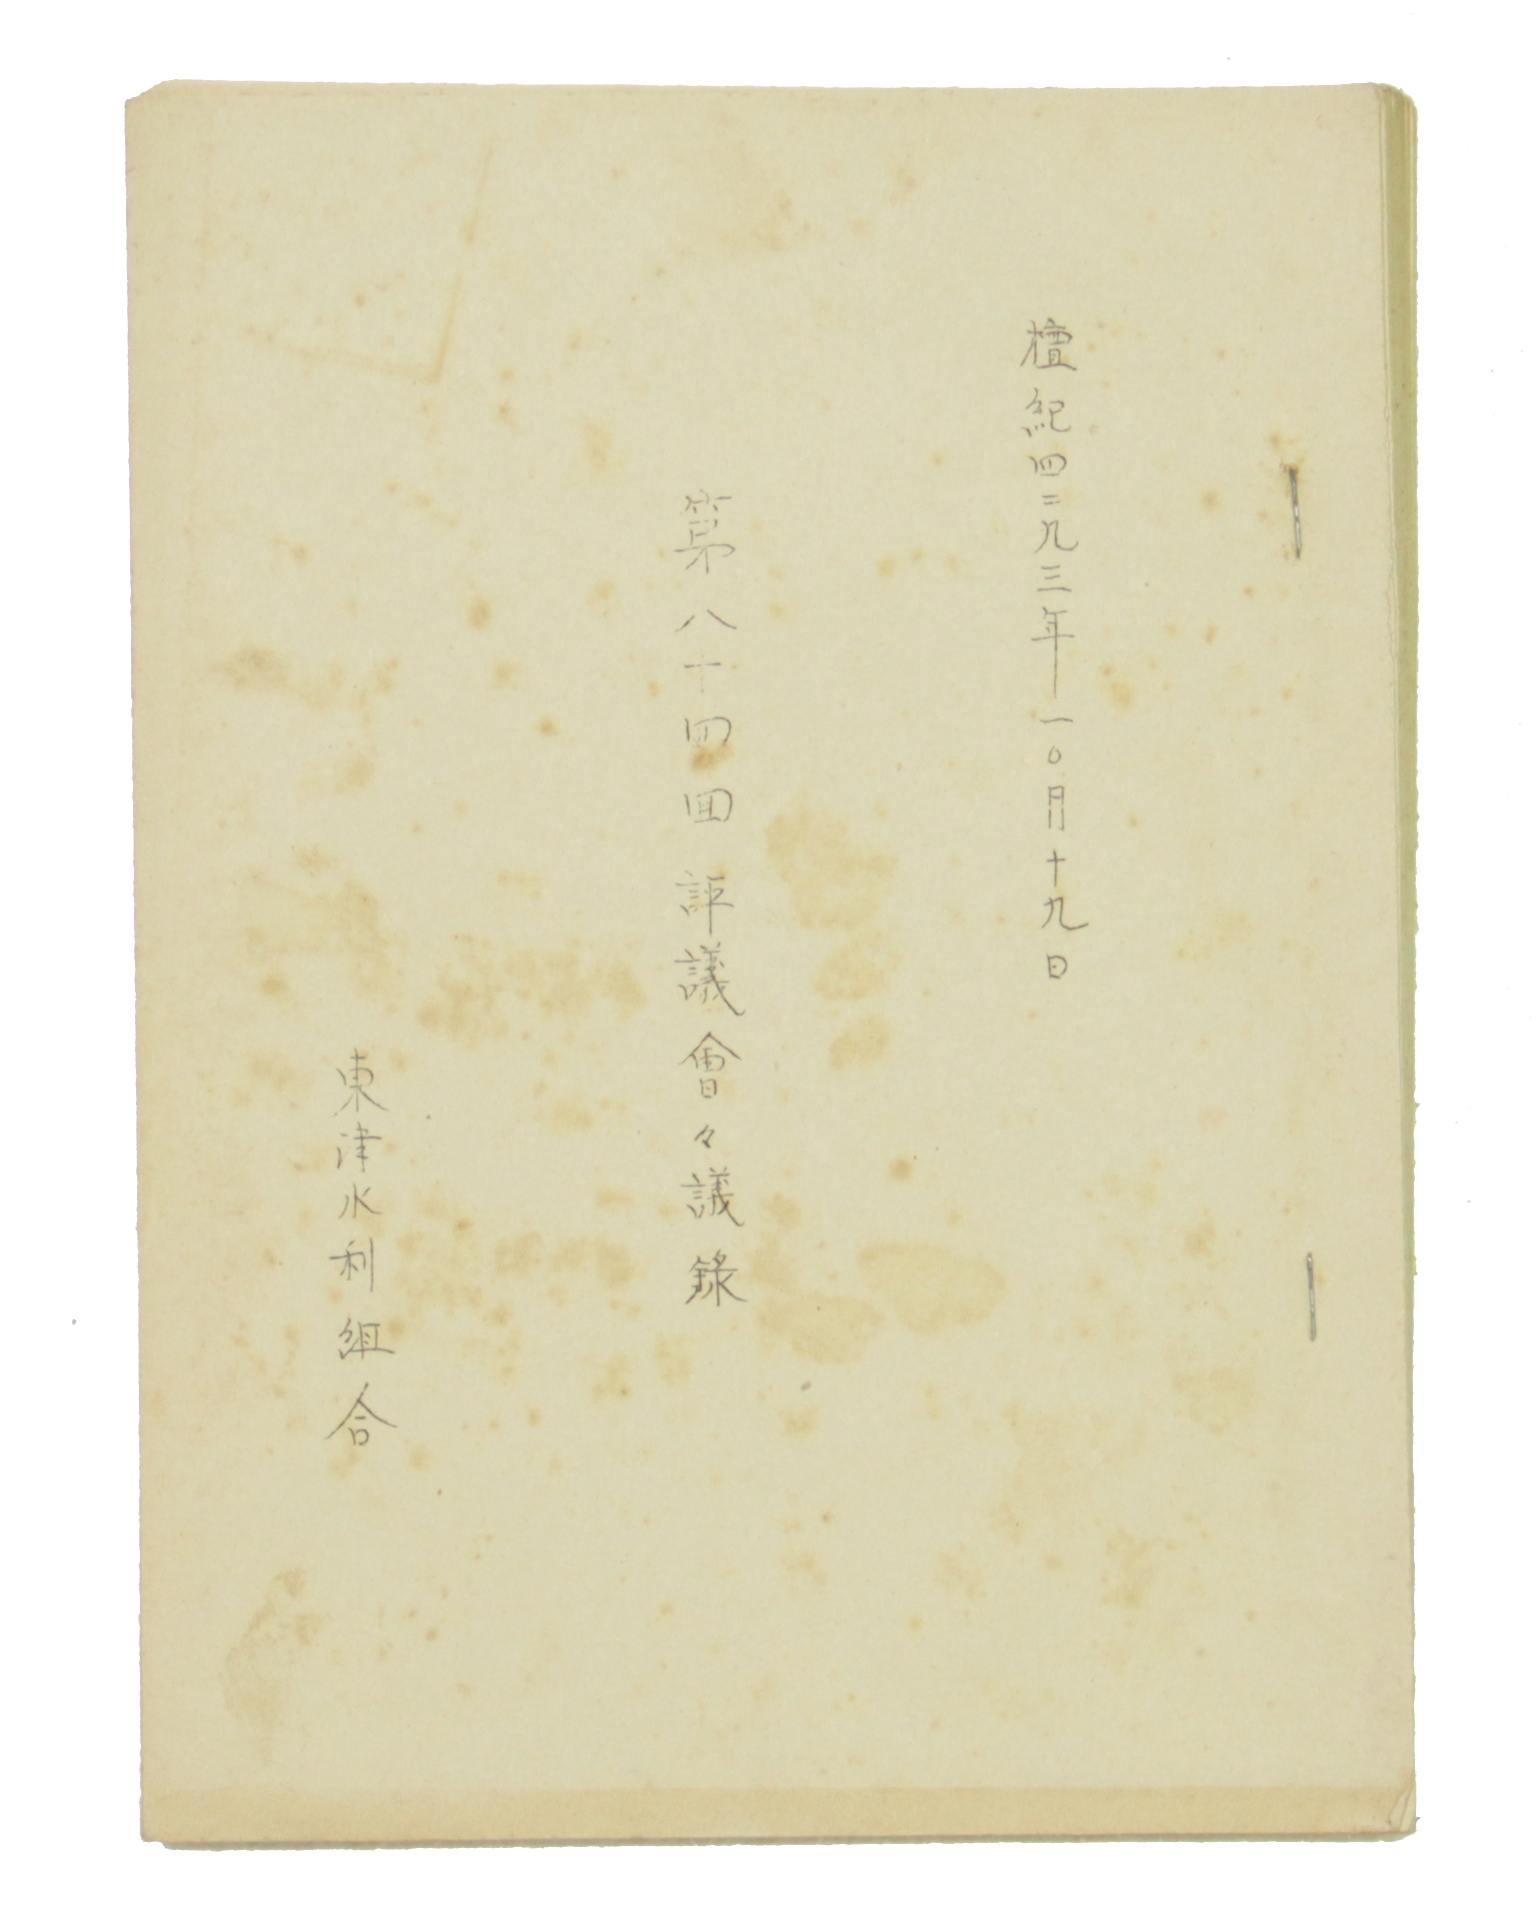 檀紀四二九三年一〇月十九日
第八十四回 評議會々議錄
東津水利組合